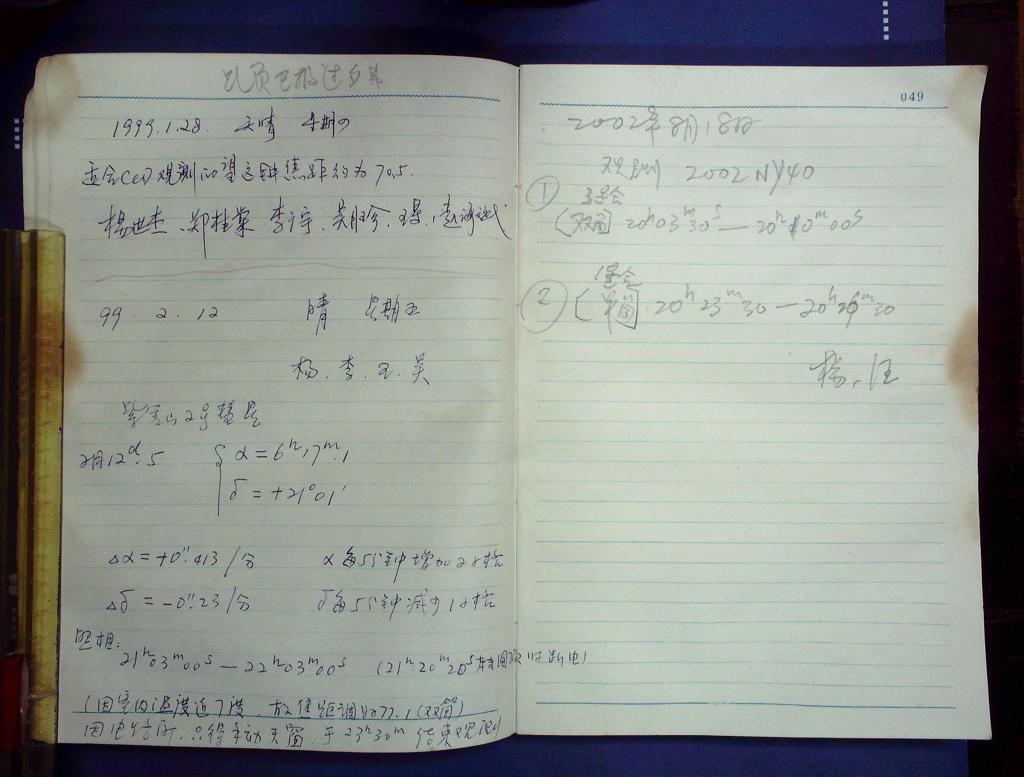 1999.1.28. 天晴 星期四
适合CCD观测的望远镜焦距约为70.5.
杨世杰、郑桂棠 李宇、吴
99. 2. 12 晴 星期五
杨.李.王.吴
紫金山2号彗星
2月12ᵈ.5 { α = 6ʰ17ᵐ.1
δ = +21°01′
Δα = +0″.413/分 α每5分钟增加2小格
Δδ = -0″.23/分 δ每5分钟减少1小格
照相:
21ʰ03ᵐ00ˢ — 22ʰ03ᵐ00ˢ (21ʰ20ᵐ20ˢ 圆顶时断电)
(因室内温度近7度,故焦距调为77.1(双筒)
因电 只得手动天窗.于23ʰ30ᵐ结束观测
049
2002年8月18日
观测 2002 NY40
① 
(双筒 20ʰ03ᵐ30ˢ — 20ʰ10ᵐ00ˢ
② 
(单筒 20ʰ23ᵐ30 — 20ʰ26ᵐ30
杨、汪